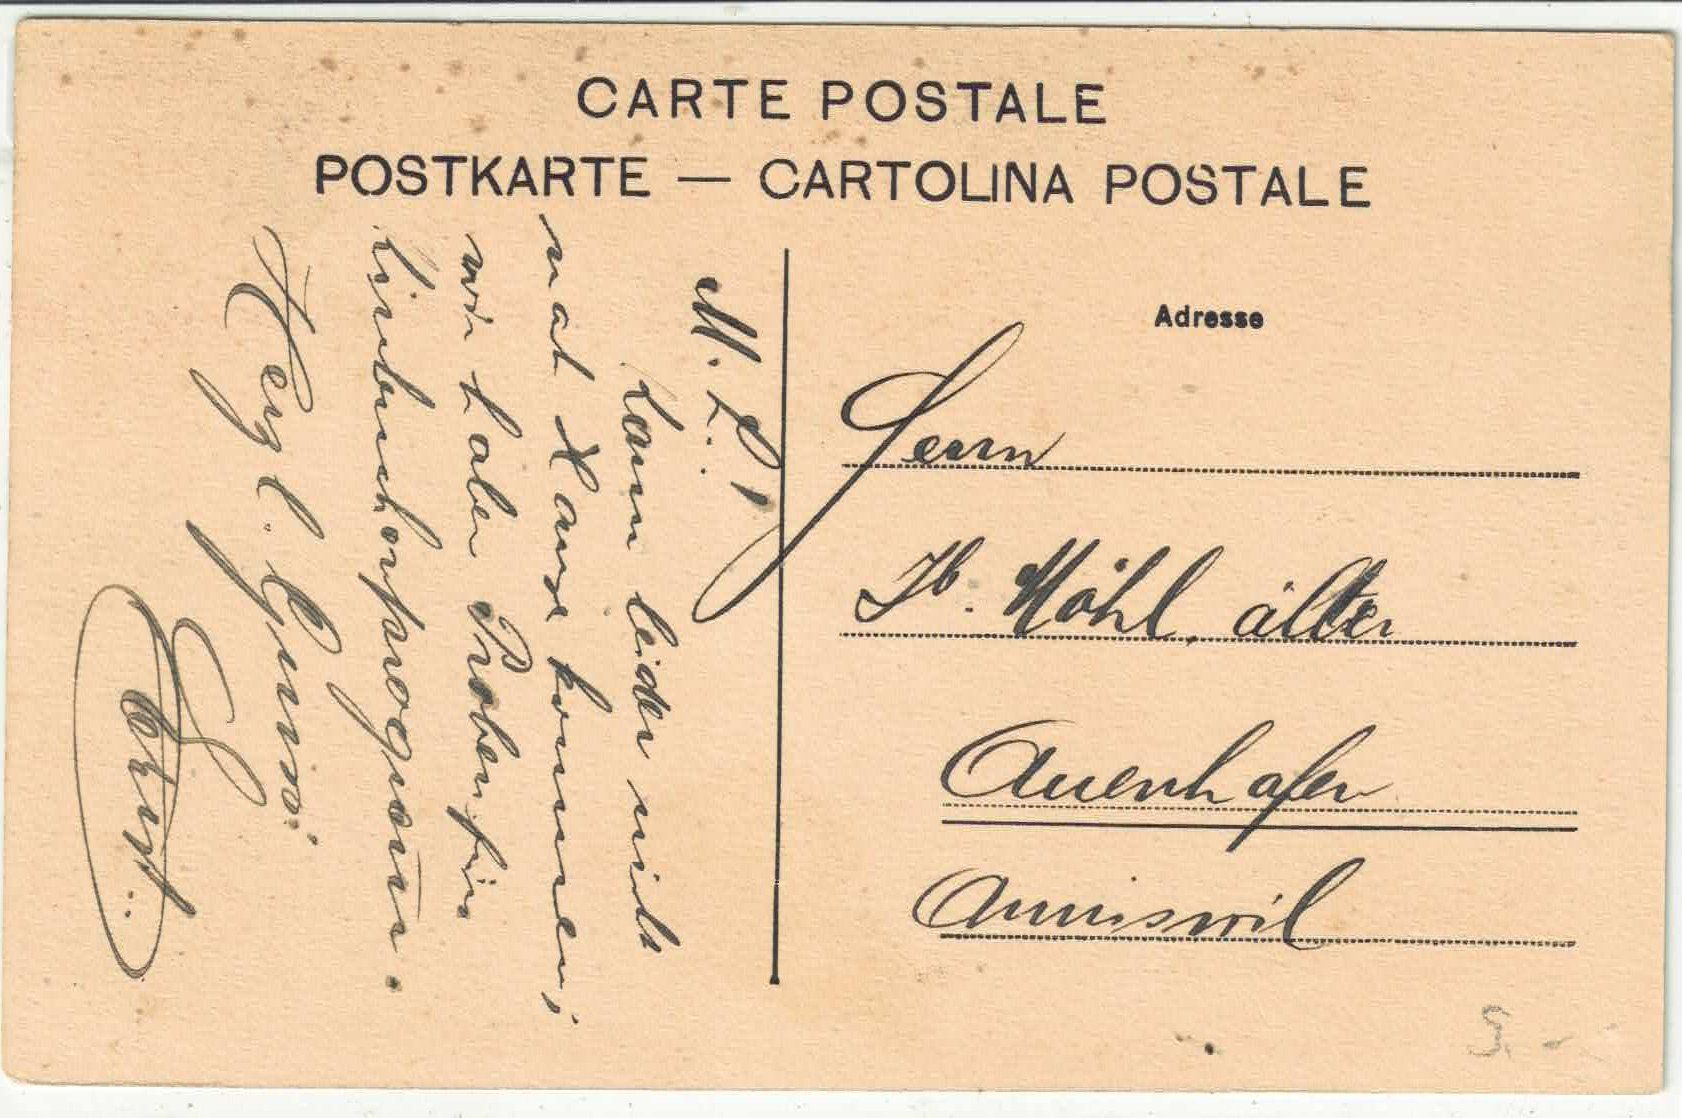 CARTE POSTALE
POSTKARTE — CARTOLINA POSTALE
M. L.!
Kann leider nicht
nach Hause kommen;
wir haben Proben für
Herzl. Gruss
Ernst.
Adresse
Herrn
Jb. Möhl, älter
Auenhofen
Amriswil
3.-